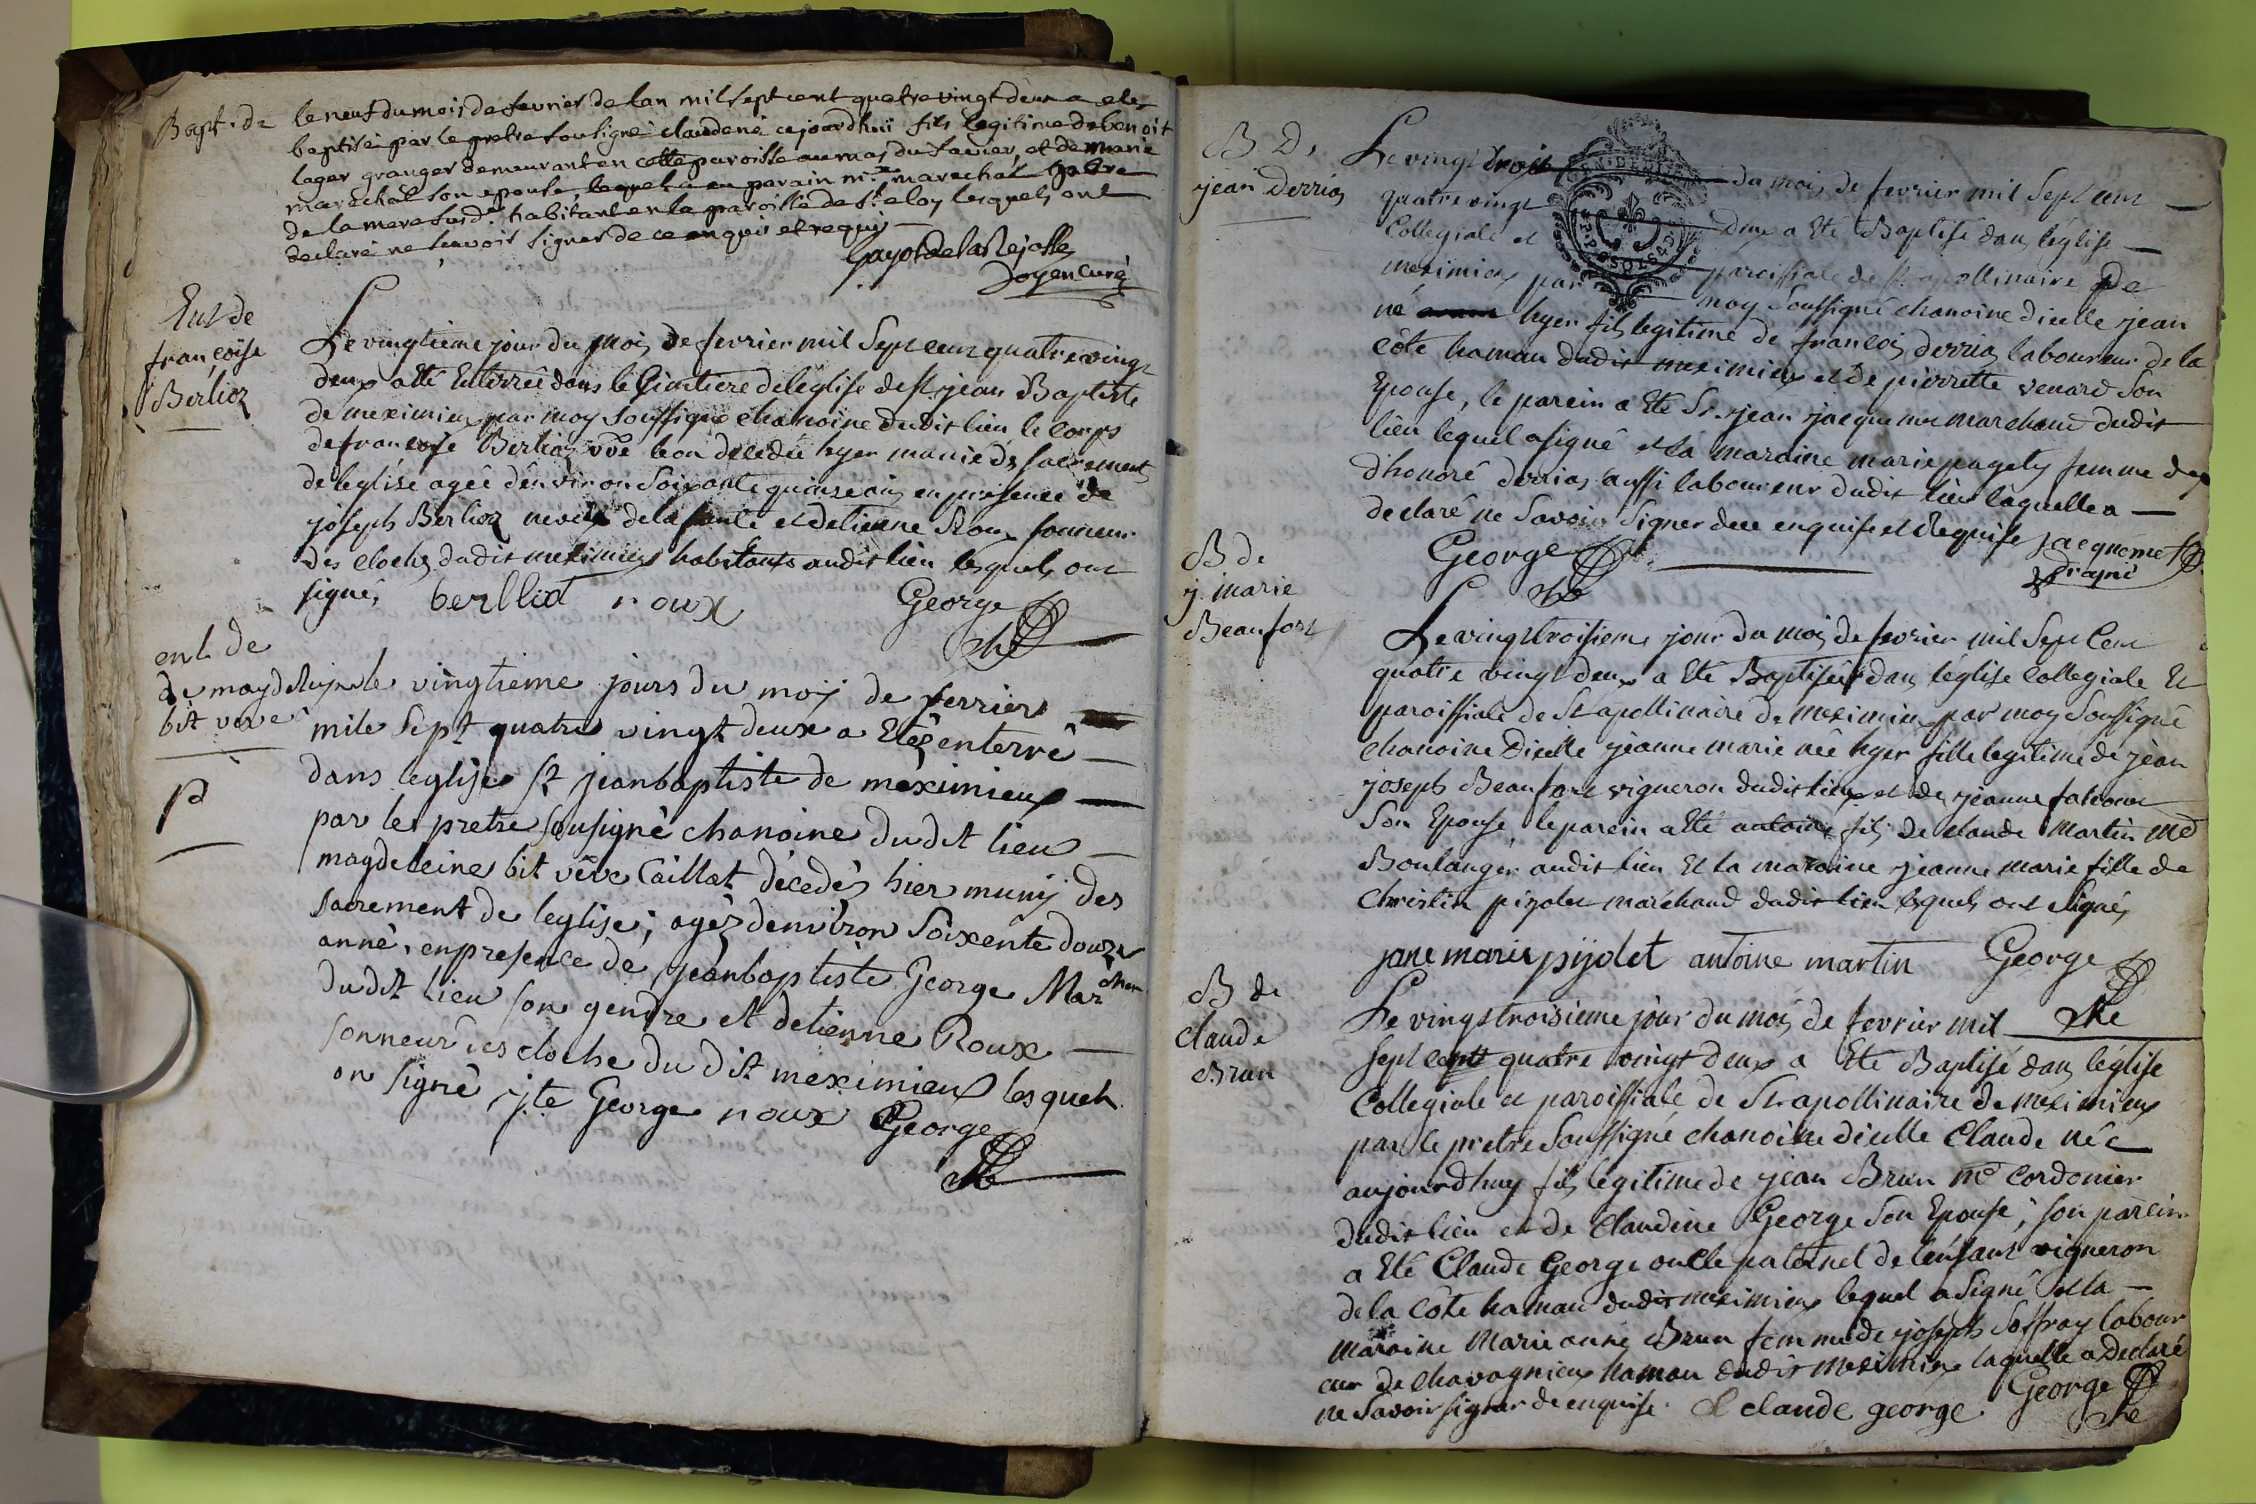 Bapt. de
le neuf du mois de fevrier de lan mil sept cent quatre vingt deux a eté
baptisé par le pretre sousigné claude né cejourdhui fils legitime de benoit
lager granger demeurant en cette paroisse au mas du et de marie
maréchal son epouse, lequel a eu parain me marechal
de la mere susde habitant en la paroisse de st eloy lesquels ont
declaré ne scavoir signer de ce enquis et requis
Doyen Curé
Ent de
françoise
Berlioz
Le vingtieme jour du mois de fevrier mil sept cent quatre vingt
deux a été Enterrée dans le Cimetiere de leglise de st jean Baptiste
de meximieux par moy soussigné chanoine dudit lieu le corps
de francoise Berlioz vve décedée hyer munie des sacrements
de léglise agée d'environ soixante quinze ans en presence de
joseph Berlioz neveu de la funte et detienne Roux sonneur
des cloches dudit meximieux habitants audit lieu lesquels ont
signé, berlliod roux George
che
ent. de
de magdeleine
bit veve
P
le vingtieme jours du moy de ferrier
mile sept quatre vingt deux a Etez enterré
dans leglise st jeanbaptiste de meximieux
par le pretre sousigné chanoine du dit lieu
magdeleine bit vêve Caillat décedéz hier muny des
sacrement de leglise; agéz denviron soixente douze
anné, en presence de jeanbaptiste George Marchan
du dit lieu son gendre et detienne Roux
sonneur des cloche du dit meximieux lesquels
on signé j.te George roux George
che
B D,
jean Derrias
Le vingt trois du mois de fevrier mil sept cent
quatre vingt deux a été Baptisé dans l'église
Collegiale et paroissiale de st apollinaire de
meximieux par moy soussigné chanoine d'icelle jean
né hyer fils legitime de francois derrias laboureur de la
côte hamau dudit meximieux et de pierrette venard son
Epouse, le parein a été Sr. jean jacqueme marchand dudit
lieu lequel a signé et la maraine marie pugety femme de
d'honoré derrias aussi laboureur dudit lieu laquelle a
declaré ne savoir signer de ce enquise et Requise jacqueme
George
che
B de
j. marie
Beaufort
Le vingt troisieme jour du mois de fevrier mil Sept Cent
quatre vingt deux a été Baptisée dans l'église Collegiale Et
paroissiale de St apollinaire de meximieux par moy soussigné
chanoine d'icelle jeanne marie née hyer fille legitime de jean
joseph Beaufort vigneron dudit lieu et de jeanne
Son Epouse, le parein a été antoine fils de claude Martin md
Boulanger audit lieu Et la maraine jeanne marie fille de
Christin pizolet marchand dudit lieu lesquels ont signé,
jane marie pijolet antoine martin George
che
B de
claude
Brun
Le vingt troisieme jour du mois de fevrier mil
sept cent quatre vingt deux a Eté Baptisé dans l'église
Collegiale et paroissiale de St apollinaire de meximieux
par le pretre soussigné chanoine d'icelle Claude né
aujourdhuy fils legitime de jean Brun me Cordonier
dudit lieu et de Claudine George son Epouse; son parein
a Eté Claude George oncle paternel de l'enfant vigneron
de la côte hamau dudit meximieux lequel a signé et la
maraine Marie anne Brun femme de joseph Soffray labour
eur de chavagnieux hamau dudit meximieux laquelle a declaré
ne savoir signer de enquise. claude george. George
che